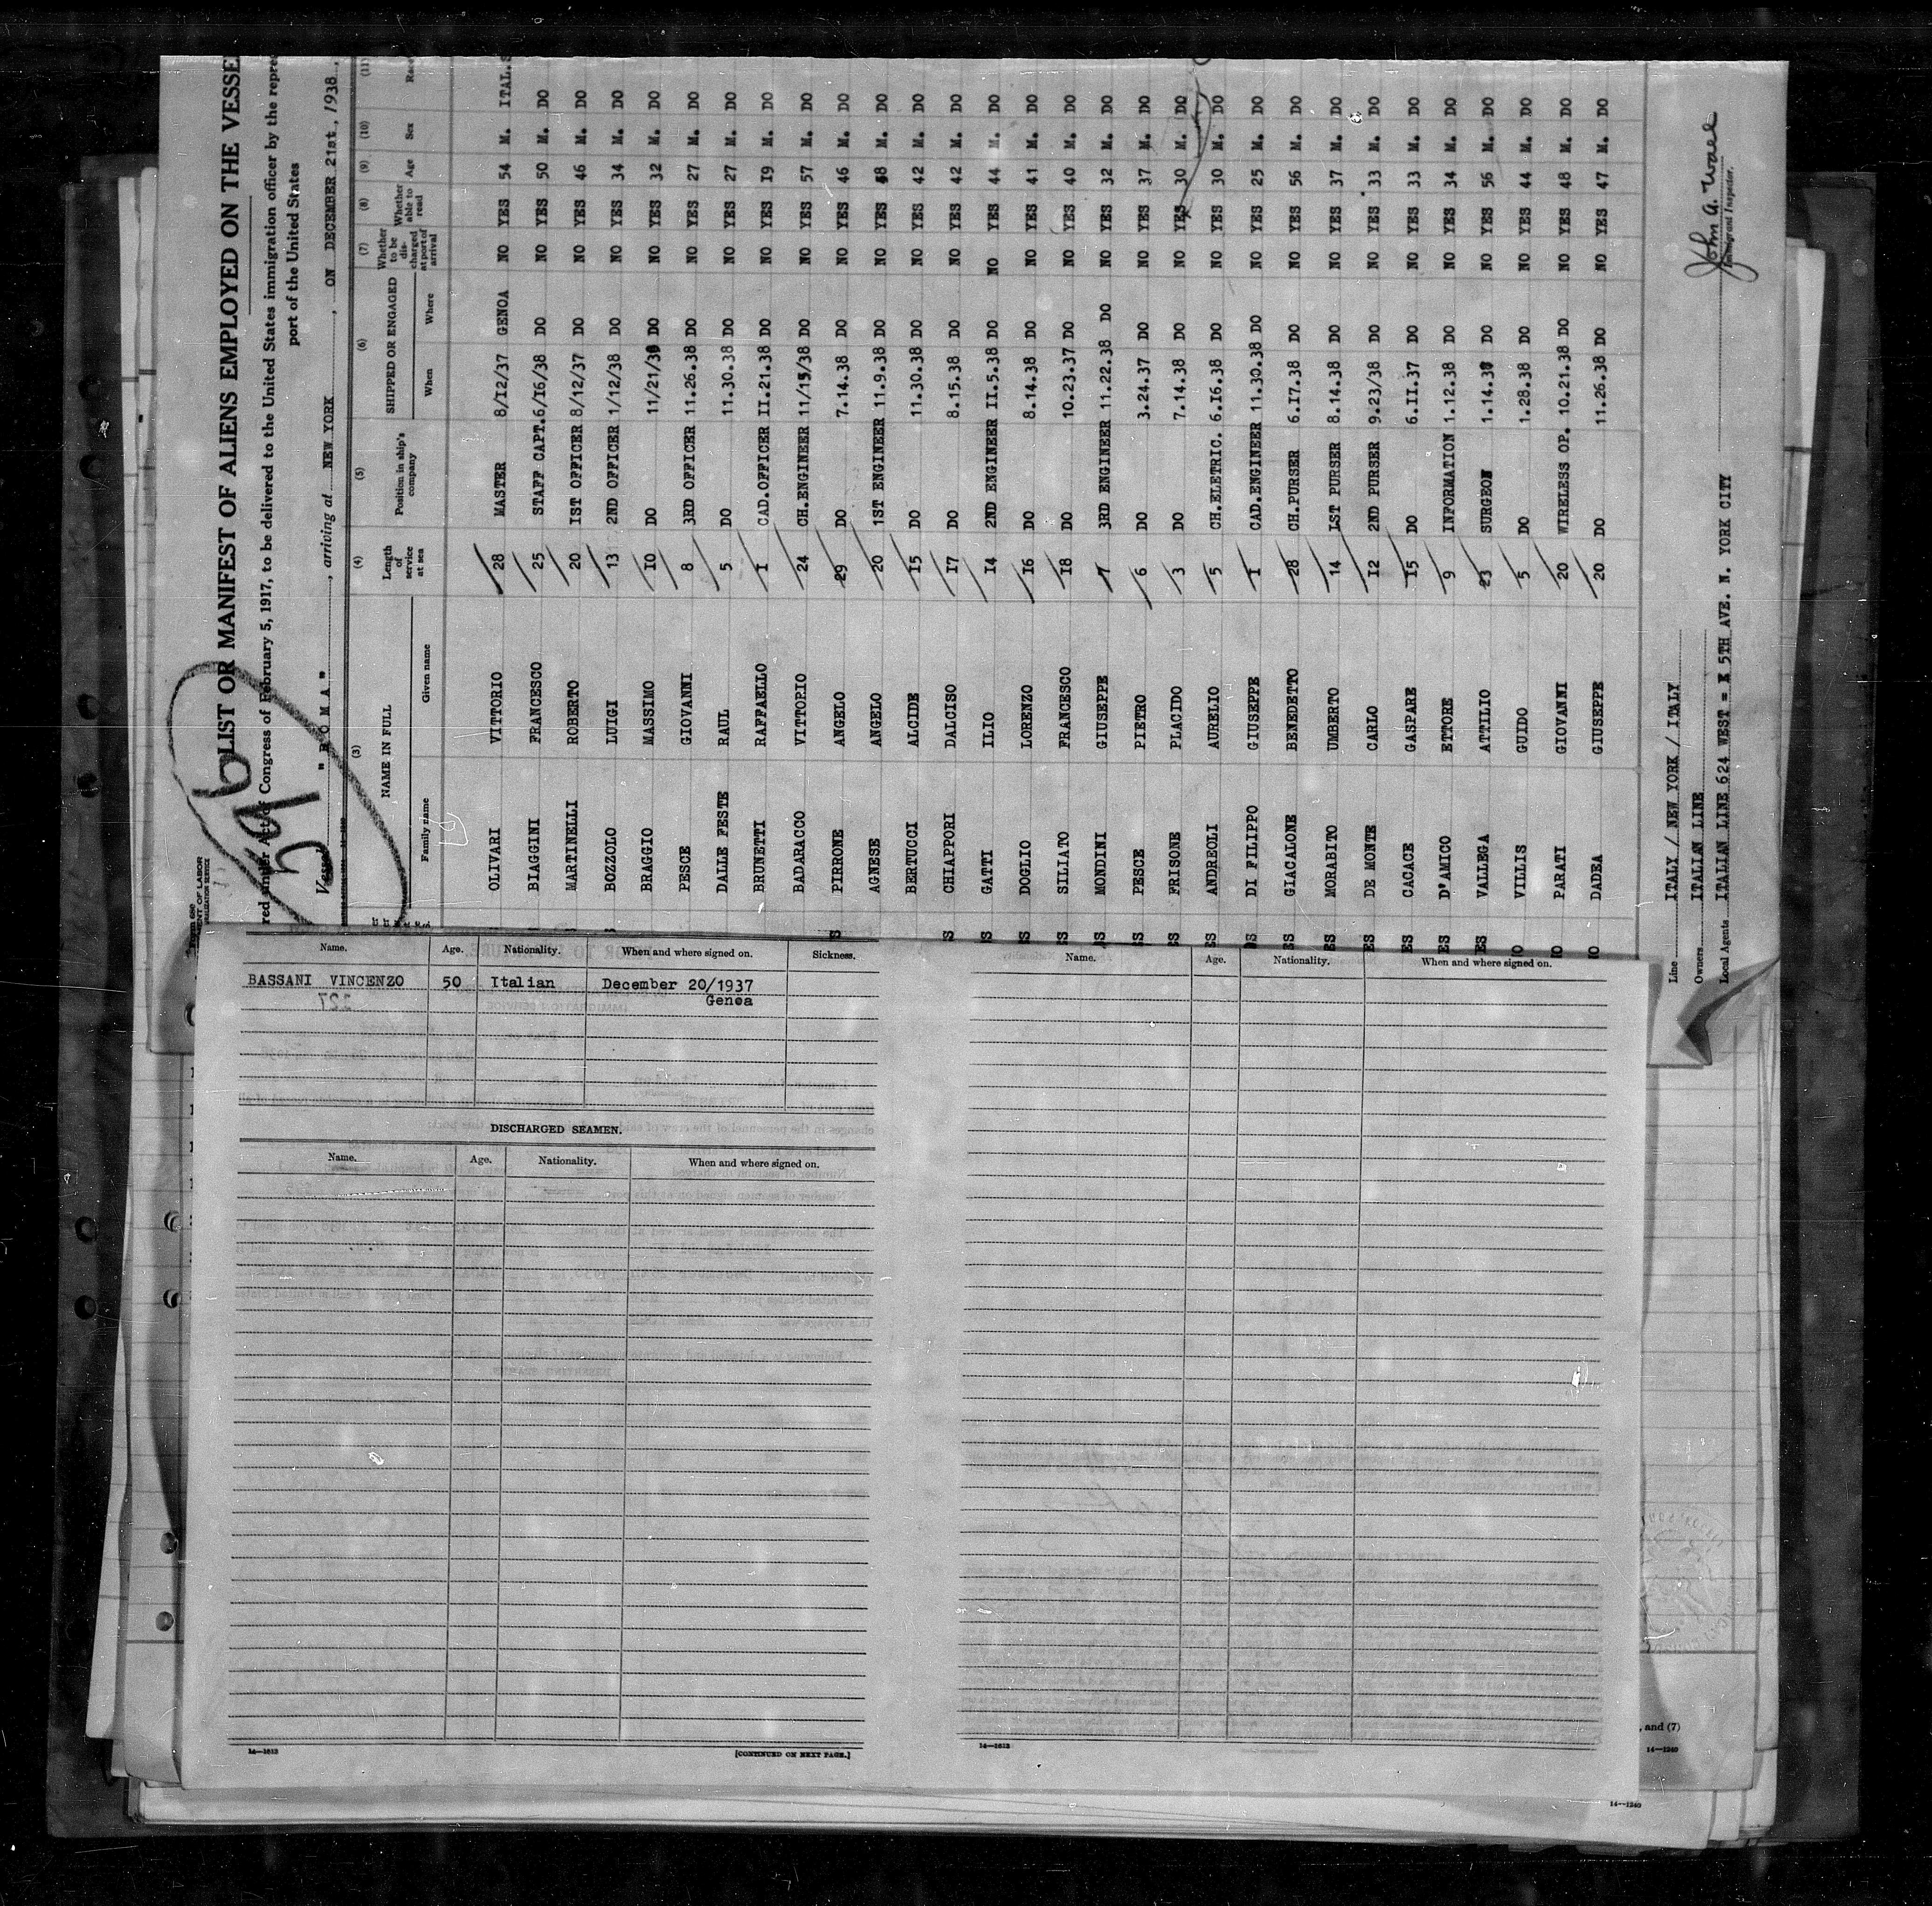 LIST OR MANIFEST OF ALIENS EMPLOYED ON THE VESSE
red under Act of Congress of February 5, 1917, to be delivered to the United States immigration officer by the repre
port of the United States
Vessel " R O M A " , arriving at NEW YORK , ON DECEMBER 21st., 1938 ,
596
(3) (4) (5) (6) (7) (8) (9) (10) (11)
NAME IN FULL Length of service at sea Position in ship's company SHIPPED OR ENGAGED Whether to be discharged at port of arrival Whether able to read Age Sex Race
Family name Given name When Where
OLIVARI VITTORIO 28 MASTER 8/12/37 GENOA NO YES 54 M. ITAL.S
BIAGGINI FRANCESCO 25 STAFF CAPT. 6/16/38 DO NO YES 50 M. DO
MARTINELLI ROBERTO 20 IST OFFICER 8/12/37 DO NO YES 46 M. DO
BOZZOLO LUIGI 13 2ND OFFICER 1/12/38 DO NO YES 34 M. DO
BRAGGIO MASSIMO 10 DO 11/21/ DO NO YES 32 M. DO
PESCE GIOVANNI 8 3RD OFFICER 11.26.38 DO NO YES 27 M. DO
DALLE FESTE RAUL 5 DO 11.30.38 DO NO YES 27 M. DO
BRUNETTI RAFFAELLO I CAD.OFFICER II.21.38 DO NO YES I9 M. DO
BADARACCO VITTORIO 24 CH.ENGINEER 11/15/38 DO NO YES 57 M. DO
PIRRONE ANGELO 29 DO 7.14.38 DO NO YES 46 M. DO
AGNESE ANGELO 20 1ST ENGINEER 11.9.38 DO NO YES 48 M. DO
BERTUCCI ALCIDE I5 DO 11.30.38 DO NO YES 42 M. DO
CHIAPPORI DALCISO I7 DO 8.15.38 DO NO YES 42 M. DO
GATTI ILIO I4 2ND ENGINEER II.5.38 DO NO YES 44 M. DO
DOGLIO LORENZO I6 DO 8.14.38 DO NO YES 41 M. DO
SILIATO FRANCESCO I8 DO 10.23.37 DO NO YES 40 M. DO
MONDINI GIUSEPPE 7 3RD ENGINEER 11.22.38 DO NO YES 32 M. DO
PESCE PIETRO 6 DO 3.24.37 DO NO YES 37 M. DO
FRISONE PLACIDO 3 DO 7.14.38 DO NO YES 30 M. DO
ANDREOLI AURELIO 5 CH.ELETRIC. 6.16.38 DO NO YES 30 M. DO
DI FILIPPO GIUSEPPE I CAD.ENGINEER 11.30.38 DO NO YES 25 M. DO
GIACALONE BENEDETTO 28 CH.PURSER 6.I7.38 DO NO YES 56 M. DO
MORABITO UMBERTO 14 LST PURSER 8.14.38 DO NO YES 37 M. DO
DE MONTE CARLO 12 2ND PURSER 9.23/38 DO NO YES 33 M. DO
CACACE GASPARE I5 DO 6.II.37 DO NO YES 33 M. DO
D'AMICO ETTORE 9 INFORMATION 1.12.38 DO NO YES 34 M. DO
VALLEGA ATTILIO 23 SURGEON 1.14.38 DO NO YES 56 M. DO
VILLIS GUIDO 5 DO 1.28.38 DO NO YES 44 M. DO
PARATI GIOVANNI 20 WIRELESS OP. 10.21.38 DO NO YES 48 M. DO
DADEA GIUSEPPE 20 DO 11.26.38 DO NO YES 47 M. DO
Line ITALY / NEW YORK / ITALY
Owners ITALIAN LINE
Local Agents ITALIAN LINE 624 WEST = E 5TH AVE. N. YORK CITY
Immigrant Inspector.
Name. Age. Nationality. When and where signed on. Sickness.
BASSANI VINCENZO 50 Italian December 20/1937
Genoa
DISCHARGED SEAMEN.
Name. Age. Nationality. When and where signed on.
14—1613 [CONTINUED ON NEXT PAGE.]
Name. Age. Nationality. When and where signed on.
14—1613
, and (7)
14—1240
14—1240